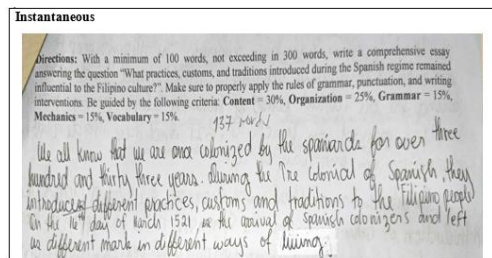 Instantaneous
Directions: With a minimum of 100 words, not exceeding in 300 words, write a comprehensive essay
answering the question "What practices, customs, and traditions introduced during the Spanish regime remained
influential to the Filipino culture?". Make sure to properly apply the rules of grammar, punctuation, and writing
interventions. Be guided by the following criteria: Content = 30%, Organization = 25%, Grammar = 15%,
Mechanics = 15%, Vocabulary = 15%.
137 words
We all know that we are once colonized by the spaniards for over three
hundred and thirty three years. During the Pre colonial of Spanish, they
introduced different practices, customs and traditions to the Filipino people
On the 16th day of March 1521, the arrival of Spanish colonizers and left
us different mark in different ways of living.